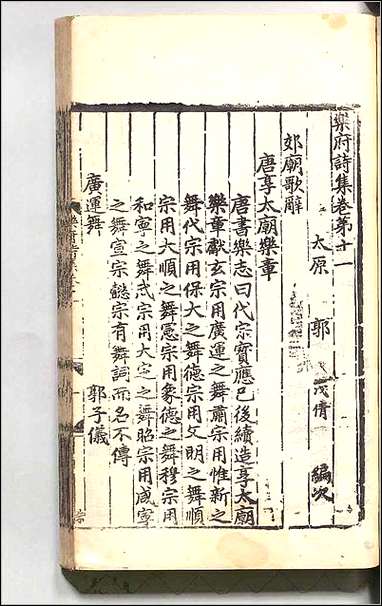 樂府詩集卷第十一
太原 郭 茂倩 編次
郊廟歌辭
唐享太廟樂章
唐書樂志曰代宗寶應已後續造享太廟
樂章獻玄宗用廣運之舞肅宗用惟新之
舞代宗用保大之舞德宗用文明之舞順
宗用大順之舞憲宗用象德之舞穆宗用
和寧之舞武宗用大定之舞昭宗用咸寧
之舞宣宗懿宗有舞詞而名不傳
廣運舞 郭子儀